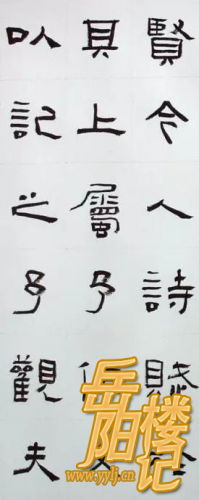 賢今人詩賦
其上屬予
以記之予觀夫
岳阳楼记
www.yylj.cn